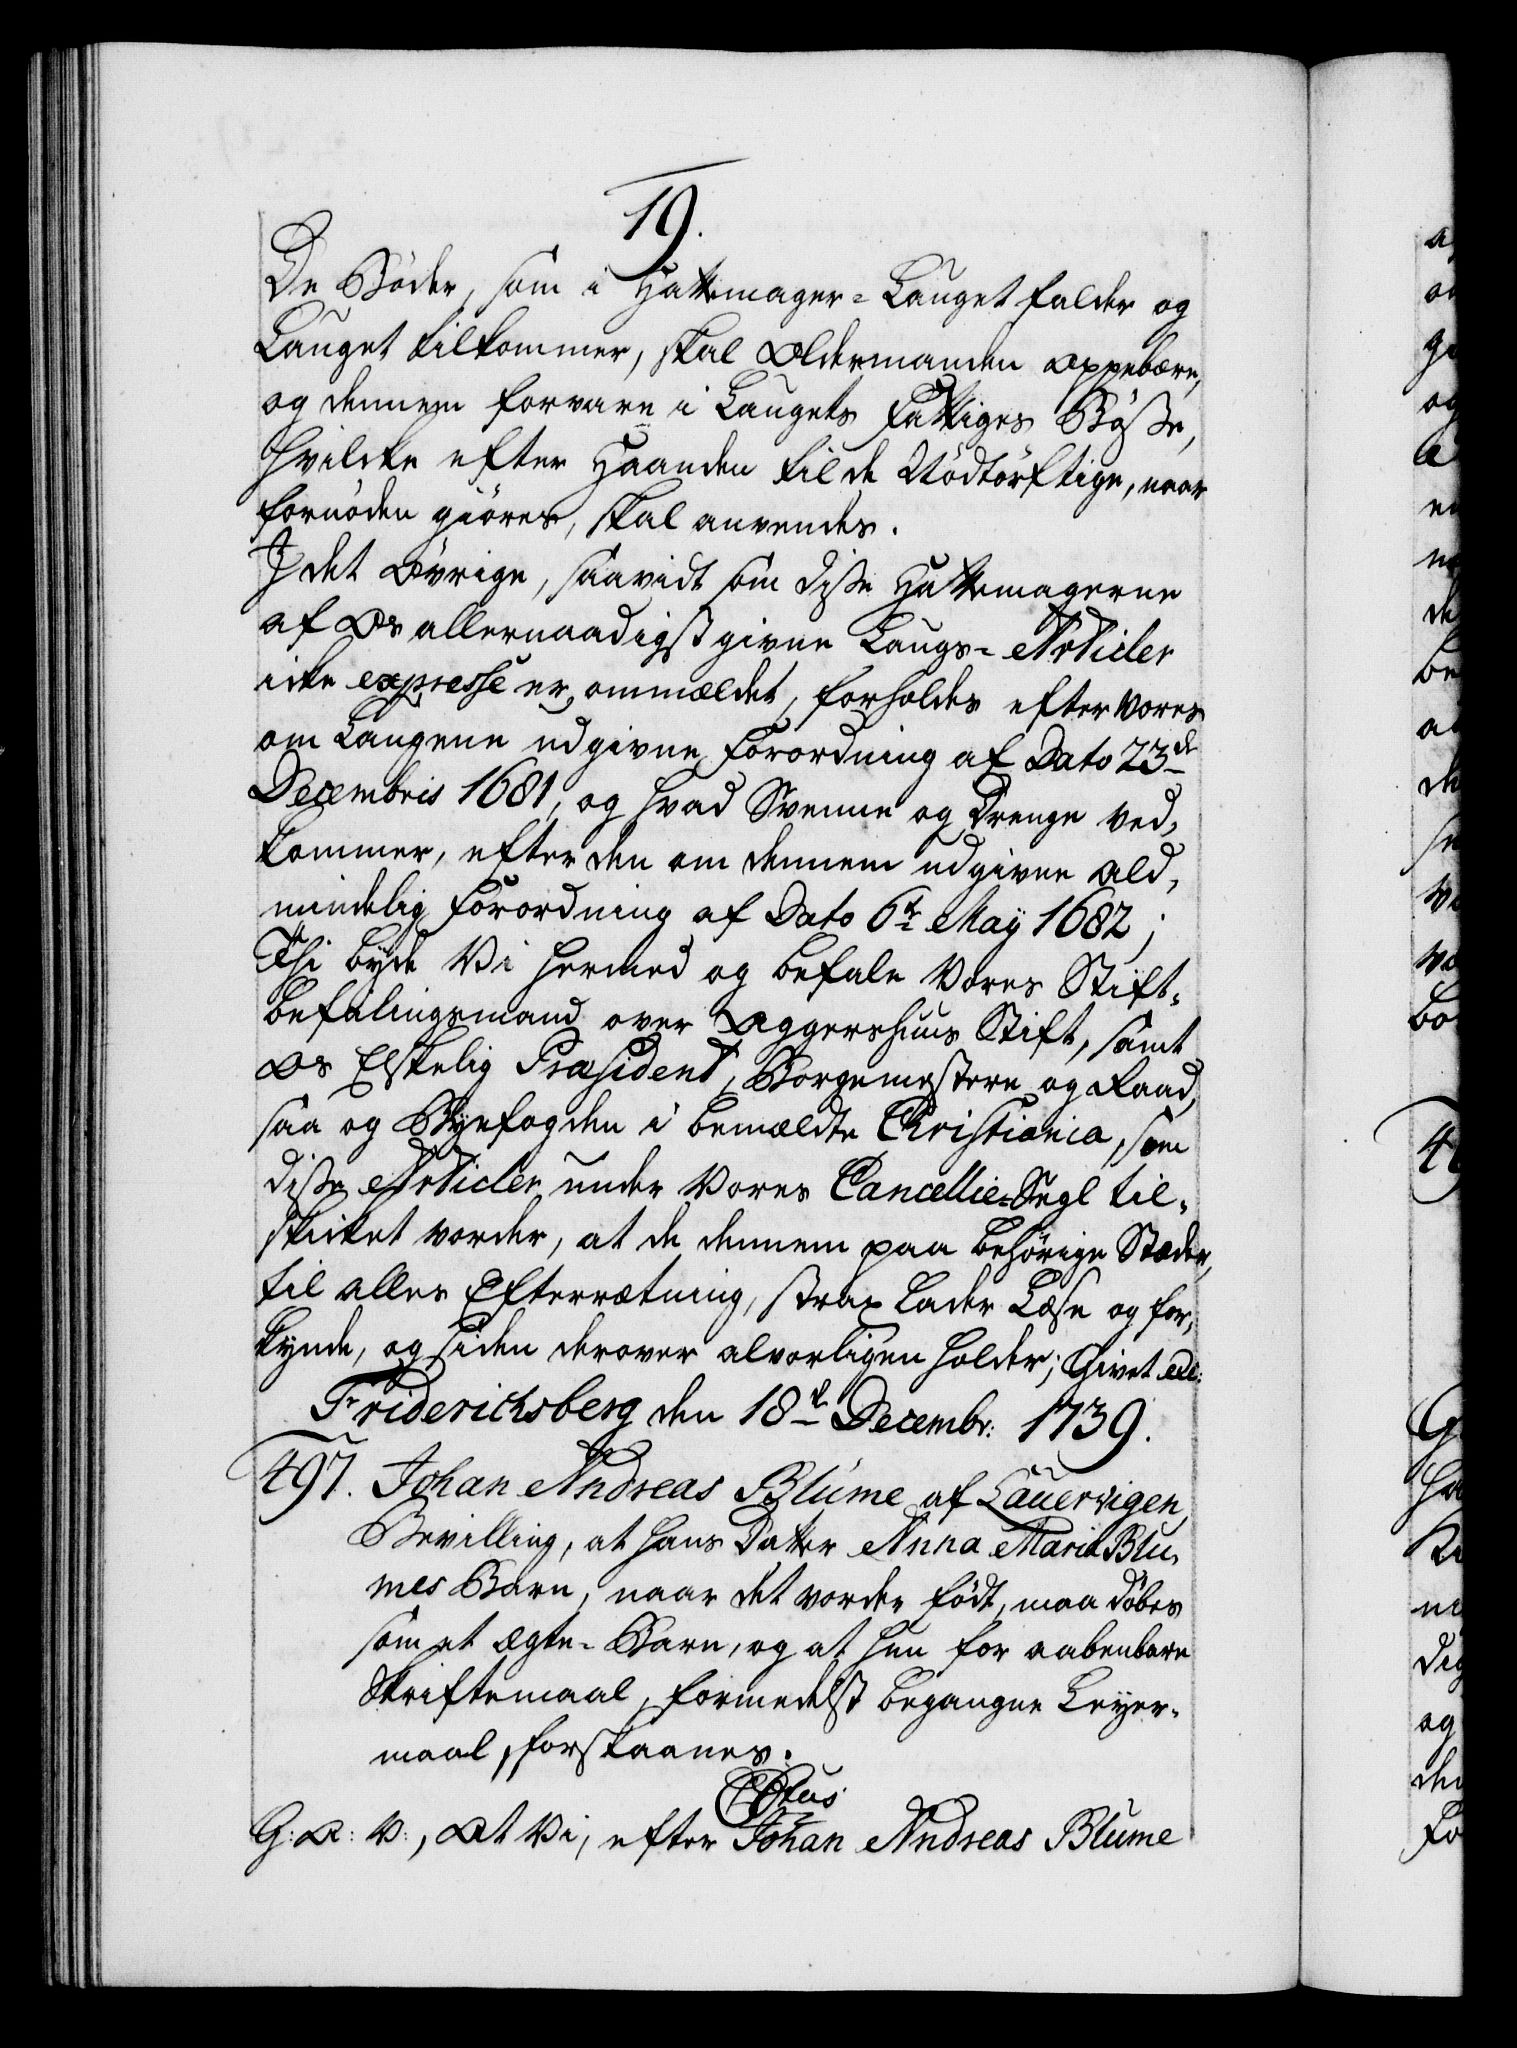 19.
De Böder, som i Hattemager-Lauget falder og
Lauget tilkommer, skal Oldermanden oppebære,
og dennem forvare i Laugets Fattiges Bösse,
hvilcke efter Haanden til de Nödtörftige, naar
fornöden giöres, skal anvendes.
I det Övrige, saavidt som disse Hattemagerne
af Os allernaadigst givne Laugs-Articler
icke expresse er ommældet, forholdes efter Vores
om Laugene udgivne Forordning af Dato 23de
Decembris 1681, og hvad Svenne og Drenge ved-
kommer, efter den om dennem udgivne Ald-
mindelig Forordning af Dato 6te Maÿ 1682;
Thi byde Vi hermed og befale Vores Stift-
befalingsmand over Aggershuus Stift, samt
Os Elskelig Præsident, Borgemestere og Raad,
saa og Byefogden i bemældte Christiania, som
disse Articler under Vores Cancellie-Segl til-
skicket vorder, at de dennem paa behörige Stæder,
til alles Efterretning, strax lader Læse og for-
kynde, og siden derover alvorligen holder; Givet
Friderichsberg den 18de Decembr: 1739.
497. Johan Andreas Blume af Lauervigen,
Bevilling, at hans Datter Anna Maria Blu-
mes Barn, naar det vorder födt, maa döbes
som et ægte-Barn, og at hun for aabenbare
Skriftemaal, formedelst begangne Leyer-
maal, forskaanes.
C6tus
G: A: V:, At Vi, efter Johan Andreas Blume